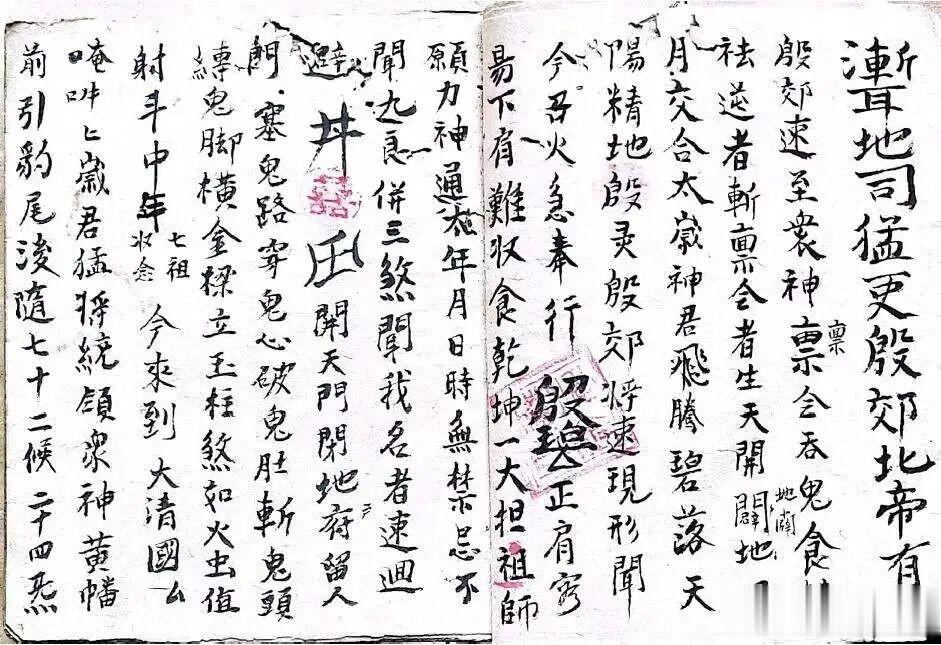 地司猛吏殷郊北帝有
殷郊速至衆神禀令吞鬼食
禀
祛逆者斬禀令者生天開闢地
地關
月交合太歲神君飛騰碧落天
陽精地殷灵殷郊將速現形聞
今召火急奉行 正肩窮
易下有難收食乾坤一大担祖師
願力神通 年月日時無禁忌不
聞九良併三煞聞我名者速迴
避 井 開天門閉地府留人
門塞鬼路穿鬼心破鬼肚斬鬼頭
縛鬼脚橫金樑立玉柱煞如火虫值
射斗中年 七祖 今來到大清國厶
收念
唵吽匕歲君猛将統領衆神黄幡
前引豹尾後隨七十二候二十四炁